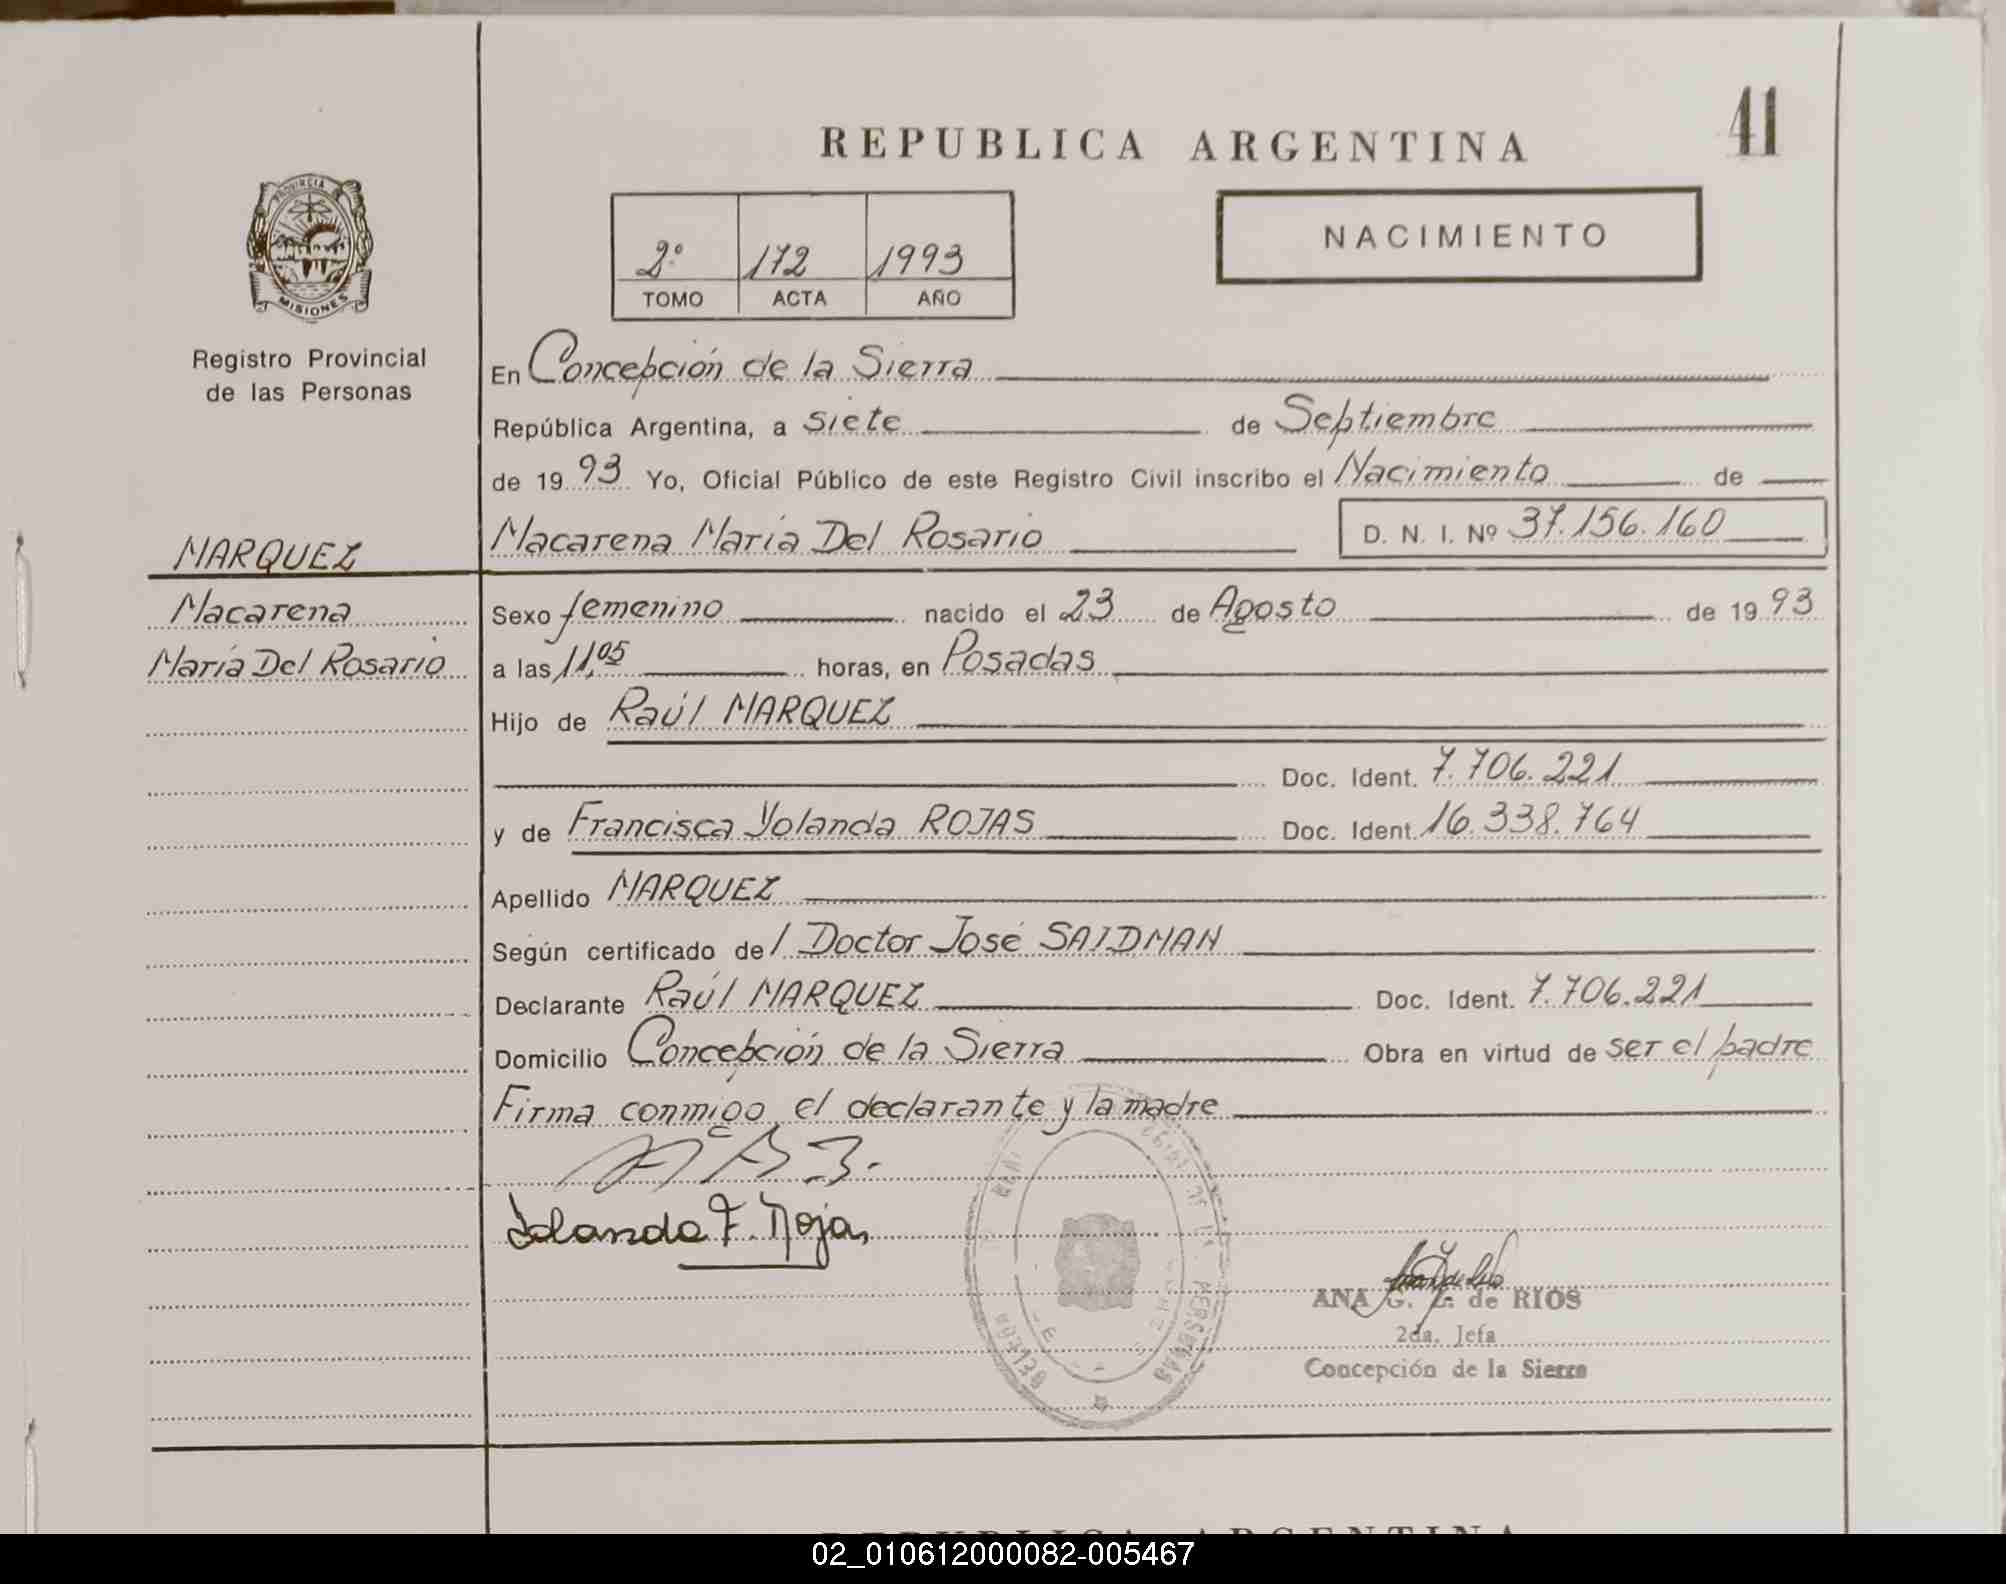 41
REPUBLICA ARGENTINA
PROVINCIA
MISIONES
Registro Provincial
de las Personas
2º 172 1993
TOMO ACTA AÑO
NACIMIENTO
En Concepción de la Sierra
República Argentina, a siete de Septiembre
de 1993 Yo, Oficial Público de este Registro Civil inscribo el Nacimiento de
MARQUEZ
Macarena María Del Rosario D. N. I. Nº 37.156.160
Macarena
María Del Rosario
Sexo femenino nacido el 23 de Agosto de 1993
a las 11,05 horas, en Posadas
Hijo de Raúl MARQUEZ
Doc. Ident. 7.706.221
y de Francisca Yolanda ROJAS Doc. Ident. 16.338.764
Apellido MARQUEZ
Según certificado del Doctor José SAIDMAN
Declarante Raúl MARQUEZ Doc. Ident. 7.706.221
Domicilio Concepción de la Sierra Obra en virtud de ser el padre
Firma conmigo el declarante y la madre
Yolanda F. Rojas
ANA G. Z. de RIOS
2da. Jefa
Concepción de la Sierra
REPUBLICA ARGENTINA
02_010612000082-005467